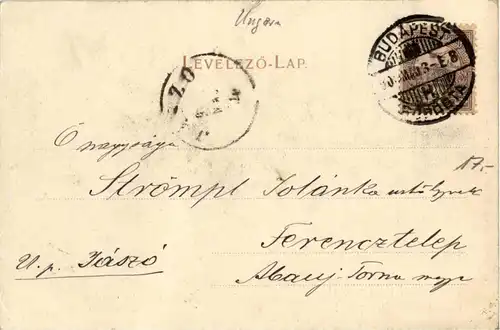 Ungarn
LEVELEZŐ-LAP.
BUDAPEST
JÁSZÓ
Ő nagysága
Strömpl Jolánka urhölgynek
17.-
Ferencztelep
U. p. Jászó
Abauj-Torna megye